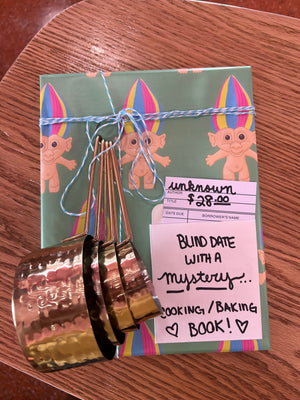 AUTHOR
unknown
TITLE
$28.00
DATE DUE
BORROWER'S NAME
BLIND DATE
WITH A
mystery...
COOKING/BAKING
♡ BOOK! ♡